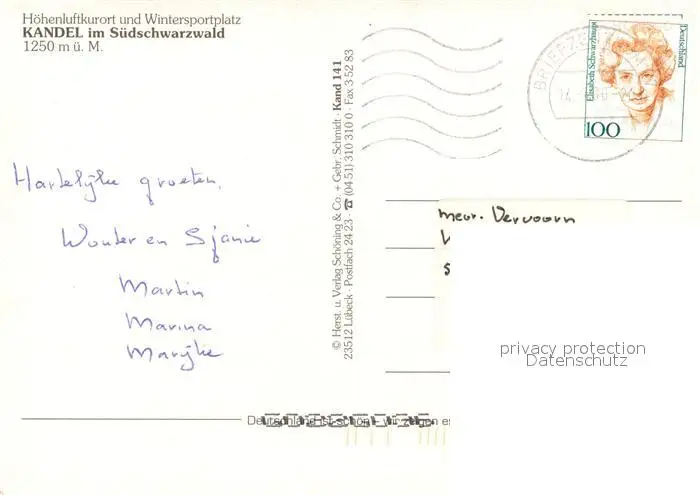 Höhenluftkurort und Wintersportplatz
KANDEL im Südschwarzwald
1250 m ü. M.
Hartelijke groeten,
Wouter en Sjanie
Martin
Marina
Marijke
© Herst. u. Verlag Schöning & Co. + Gebr. Schmidt · Kand 141
23512 Lübeck · Postfach 24 23 · ☎ (04 51) 310 310 0 · Fax 3 52 83
BRIEFZENTRUM
Elisabeth Schwarzhaupt
Deutschland
100
mevr. Vervoorn
privacy protection
Datenschutz
Deutschland ist schön – wir zeigen es